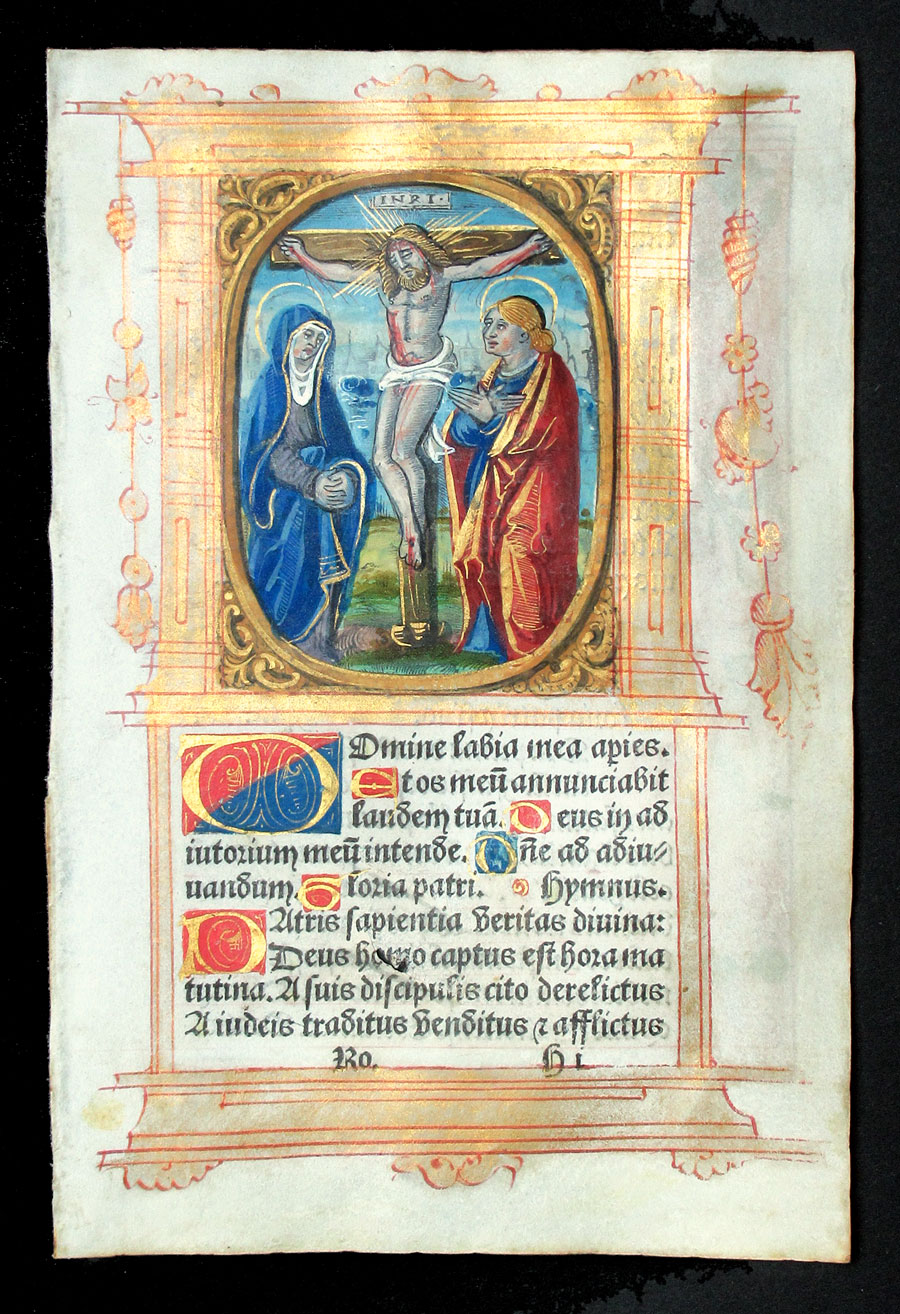 INRI·
Domine labia mea aꝑies.
Et os meū annunciabit
laudem tuā. Deus in ad
iutorium meū intende. Dñe ad adiu⸗
uandum. Gloria patri. Hymnus.
PAtris sapientia veritas divina:
Deus homo captus est hora ma
tutina. A suis discipulis cito derelictus
A iudeis traditus venditus ⁊ afflictus
Ro. H i